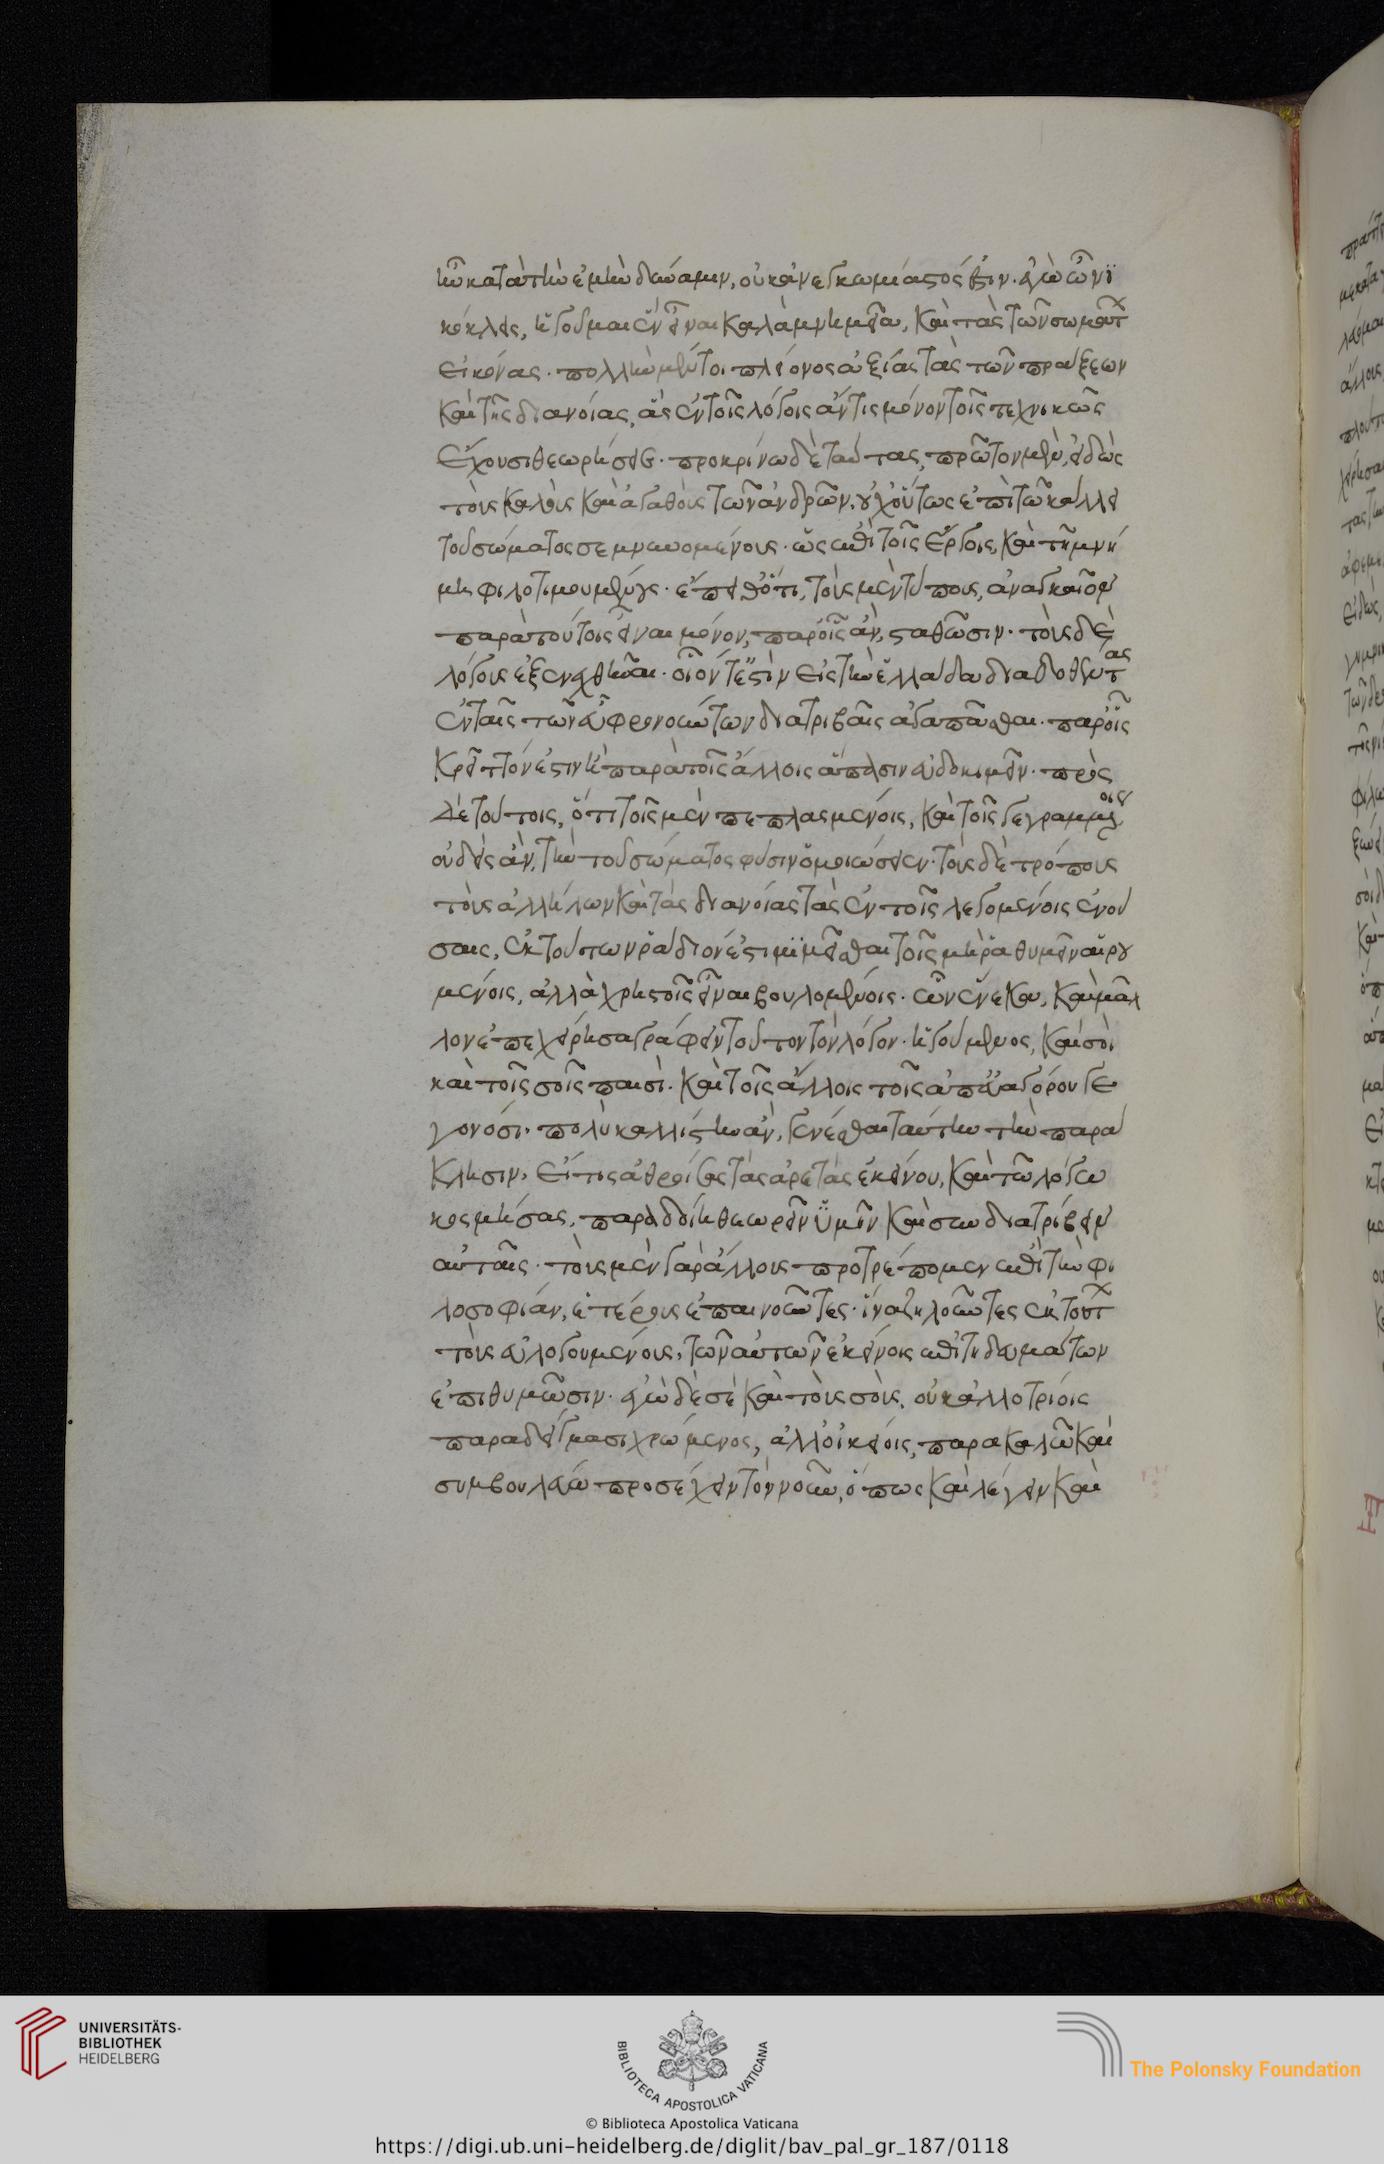 ἦν κατὰ τὴν ἐμὴν δύναμιν, οὐκ ἀνεγκωμίαστός ἐστιν. ἐγὼ ὦ νι
κόκλεις, ἡγοῦμαι ἓν εἶναι καλὰ μνημεῖα, καὶ τὰς τῶν σωμάτων
εἰκόνας. πολλῆν μέντοι πλείονος ἀξίας τὰς τῶν πράξεων
καὶ τῆς διανοίας, ἃς ἐν τοῖς λόγοις ἄν τις μόνον τοῖς τεχνικῶς
ἔχουσι θεωρήσειε. προκρίνω δὲ ταύτας, πρῶτον μὲν, εἰδὼς
τοὺς καλοὺς κἀγαθοὺς τῶν ἀνδρῶν, οὐχ οὕτως ἐπὶ τῷ κάλλει
τοῦ σώματος σεμνυνομένους. ὡς ἐπὶ τοῖς ἔργοις, καὶ τῇ μνή
μῃ φιλοτιμουμένους. ἔπειθ ὅτι, τοὺς μὲν τύπους, ἀναγκαῖον
παρὰ τούτοις εἶναι μόνον, παρ οἷς ἂν, σταθῶσιν. τοὺς δὲ
λόγους ἐξενεχθῆναι. οἷόν τἐστὶν εἰς τὴν ἑλλάδα διαδοθέντας
ἐν ταῖς τῶν εὖ φρονούντων διατριβαῖς ἀγαπᾶσθαι. παρ οἷς
κρεῖττόν ἐστιν ἢ παρὰ τοῖς ἄλλοις ἅπασιν εὐδοκιμεῖν. πρὸς
δὲ τούτοις, ὅτι τοῖς μὲν πεπλασμένοις, καὶ τοῖς γεγραμμένοις
οὐδεὶς ἂν, τὴν τοῦ σώματος φύσιν ὁμοιώσειεν. τοὺς δὲ τρόπους
τοὺς ἀλλήλων καὶ τὰς διανοίας τὰς ἐν τοῖς λεγομένοις ἐνού
σαις, ἐκ τούτων ῥάδιόν ἐστι μιμεῖσθαι τοῖς μὴ ῥαθυμεῖν αἱρου
μένοις, ἀλλὰ χρηστοῖς εἶναι βουλομένοις. ὧν ἕνεκα, καὶ μᾶλ
λον ἐπεχείρησα γράφειν τοῦτον τὸν λόγον. ἡγούμενος, καὶ σοὶ
καὶ τοῖς σοῖς παισὶ. καὶ τοῖς ἄλλοις τοῖς ἀπ εὐαγόρου γε
γονόσι. πολὺ καλλίστην ἂν, γενέσθαι ταύτην τὴν παρά
κλησιν, εἴ τις ἀθροίσας τὰς ἀρετὰς ἐκείνου, καὶ τῷ λόγῳ
κοσμήσας, παραδοίη θεωρεῖν ὑμῖν καὶ συνδιατρίβειν
αὐταῖς. τοὺς μὲν γὰρ ἄλλους προτρέπομεν ἐπὶ τὴν φι
λοσοφίαν, ἑτέρους ἐπαινοῦντες. ἵνα ζηλοῦντες ἐκ τούτων
τοὺς εὐλογουμένους, τῶν αὐτῶν ἐκείνοις ἐπιτηδευμάτων
ἐπιθυμῶσιν. ἐγὼ δὲ σὲ καὶ τοὺς σοὺς, οὐκ ἀλλοτρίοις
παραδείγμασι χρώμενος, ἀλλ οἰκείοις, παρακαλῶ καὶ
συμβουλεύω προσέχειν τὸν νοῦν, ὅπως καὶ λέγειν καὶ
UNIVERSITÄTS-
BIBLIOTHEK
HEIDELBERG
BIBLIOTECA APOSTOLICA VATICANA
The Polonsky Foundation
© Biblioteca Apostolica Vaticana
https://digi.ub.uni-heidelberg.de/diglit/bav_pal_gr_187/0118